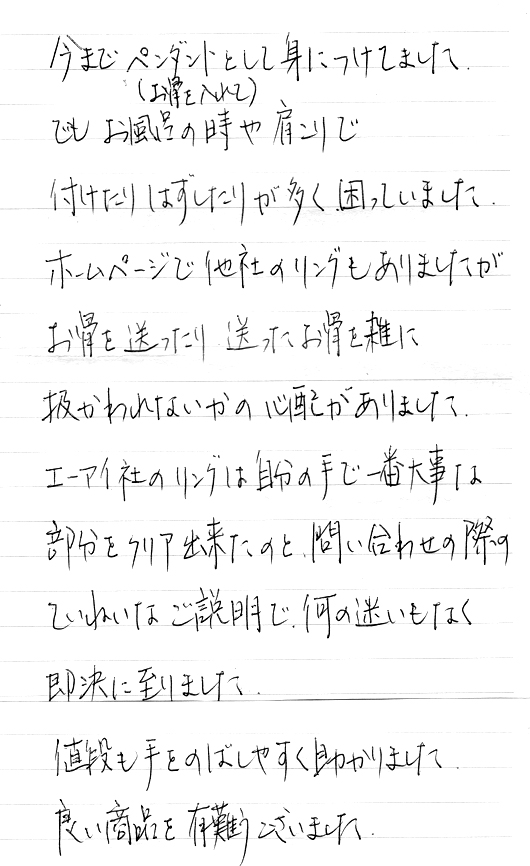 今までペンダントとして身につけてました.
(お骨を入れて)
でもお風呂の時や肩こりで
付けたりはずしたりが多く困っていました.
ホームページで他社のリングもありましたが
お骨を送ったり送ったお骨を雑に
扱かわれないかの心配がありました.
エーアイ社のリングは自分の手で一番大事な
部分をクリア出来たのと、問い合わせの際の
ていねいなご説明で、何の迷いもなく
即決に至りました.
値段も手をのばしやすく助かりました.
良い商品を有難うございました.